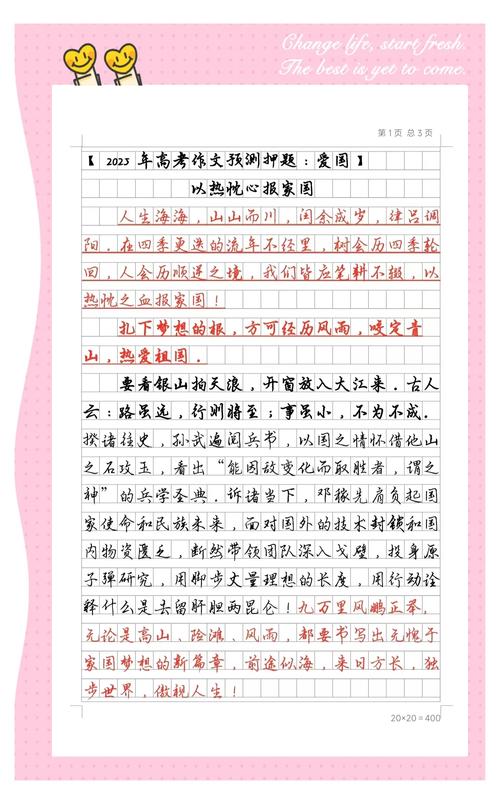 Change life, start fresh.
The best is yet to come.
第1页 总3页
【 2023 年高考作文预测押题：爱国】
以热忱心报家国
人生海海，山山而川，闰余成岁，律吕调
阳．在四季更迭的流年不经里，树会历四季轮
回，人会历顺逆之境，我们皆应笔耕不辍，以
热忱之血报家国！
扎下梦想的根，方可经历风雨，咬定青
山，热爱祖国．
要看银山拍天浪，开窗放入大江来．古人
云：路虽远，行则将至；事虽小，不为不成．
揆诸往史，孙武遍阅兵书，以国之情怀借他山
之石攻玉，著出“能因敌变化而取胜者，谓之
神”的兵学圣典．诉诸当下，邓稼先肩负起国
家使命和民族未来，面对国外的技术封锁和国
内物资匮乏，断然带领团队深入戈壁，投身原
子弹研究，用脚步丈量理想的长度，用行动诠
释什么是去留肝胆两昆仑！九万里风鹏正举，
无论是高山、险滩、风雨，都要书写出无愧于
家国梦想的新篇章，前途似海，来日方长，独
步世界，傲视人生！
20×20=400